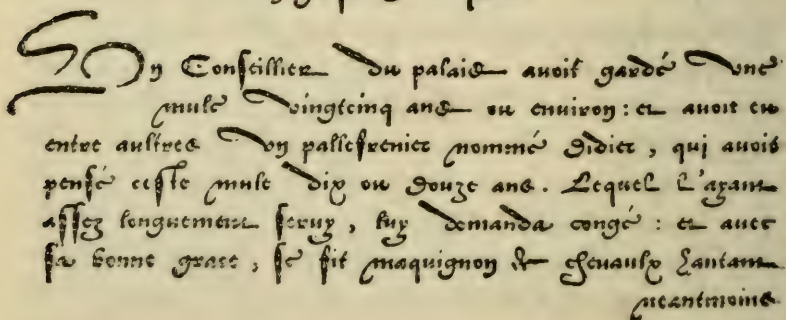 Un Conseillier du palais avoit gardé une
mule vingtcinq ans ou environ : et avoit eu
entre aultres un pallefrenier nommé Didier, qui avoit
pensé ceste mule dix ou douze ans. Lequel l'ayant
assez longuement servy, luy demanda congé : et avec
sa bonne grace, se fit maquignon de chevaulx hantant
neantmoins